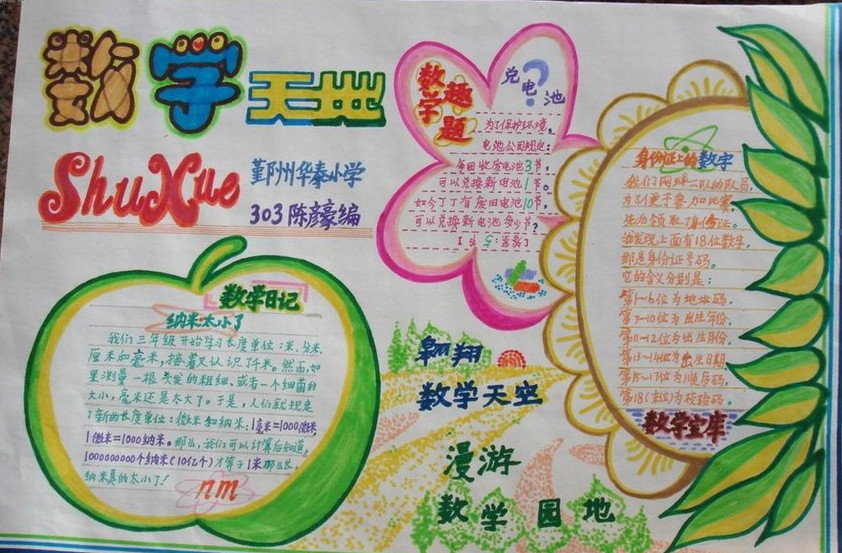 数学天地
ShuXue
鄞州华泰小学
303 陈彦豪编
数学趣题
兑电池
?
为了保护环境,
电池公司规定:
每回收废电池3节,
可以兑换新电池1节。
如今丁丁有废旧电池10节,
可以兑换新电池多少节?
【答案:5节】
身份证上的数字
我们网球二队的队员,
为了便于参加比赛,
先后领取了身份证。
我发现上面有18位数字,
那是身份证号码。
它的含义分别是:
第1~6位为地址码,
第7~10位为出生年份,
第11~12位为出生月份,
第13~14位为出生日期,
第15~17位为顺序码,
第18(末)位为校验码。
数学宝库
数学日记
纳米太小了
我们三年级开始学习长度单位:米、分米、
厘米和毫米,接着又认识了千米。然而,如
果测量一根头发的粗细、或者一个细菌的
大小,毫米还是太大了。于是,人们就规定
了新的长度单位:微米和纳米:1毫米=1000微米,
1微米=1000纳米。那么,我们可以计算后知道,
1000000000个纳米(10亿个)才等于1米那么长,
纳米真的太小了!
nm
翱翔
数学天空
漫游
数学园地